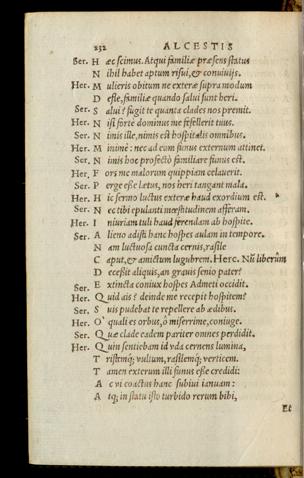 232 ALCESTIS
Ser. H æc scimus. Atqui familiæ præsens status
N ihil habet aptum risui, & conuiuijs.
Her. M ulieris obitum ne exteræ supra modum
D efle, familiæ quando salui sunt heri.
Ser. S alui? fugit te quanta clades nos premit.
Her. N isi forte dominus me fefellit tuus.
Ser. N imis ille, nimis est hospitalis omnibus.
Her. M inime: nec ad eum funus externum attinet.
Ser. N imis hoc profectò familiare funus est.
Her. F ors me malorum quippiam celauerit.
Ser. P erge esse lætus, nos heri tangant mala.
Her. H ic sermo luctus exteræ haud exordium est.
Ser. N ec tibi epulanti mœstitudinem afferam.
Her. I niuriam tuli haud ferendam ab hospite.
Ser. A lieno adisti hanc hospes aulam in tempore.
N am luctuosa cuncta cernis, rasile
C aput, & amictum lugubrem. Herc. Nũ liberûm
D ecessit aliquis, an grauis senio pater?
Ser. E xtincta coniux hospes Admeti occidit.
Her. Q uid ais? deinde me recepit hospitem?
Ser. S uis pudebat te repellere ab ædibus.
Her. O quali es orbus, ô miserrime, coniuge.
Ser. Q uæ clade eadem pariter omnes perdidit.
Her. Q uin sentiebam id uda cernens lumina,
T ristemq; uultum, rasilemq; uerticem.
T amen exterum illi funus esse credidi:
A c ui coactus hanc subiui ianuam:
A tq; in statu isto turbido rerum bibi,
Et